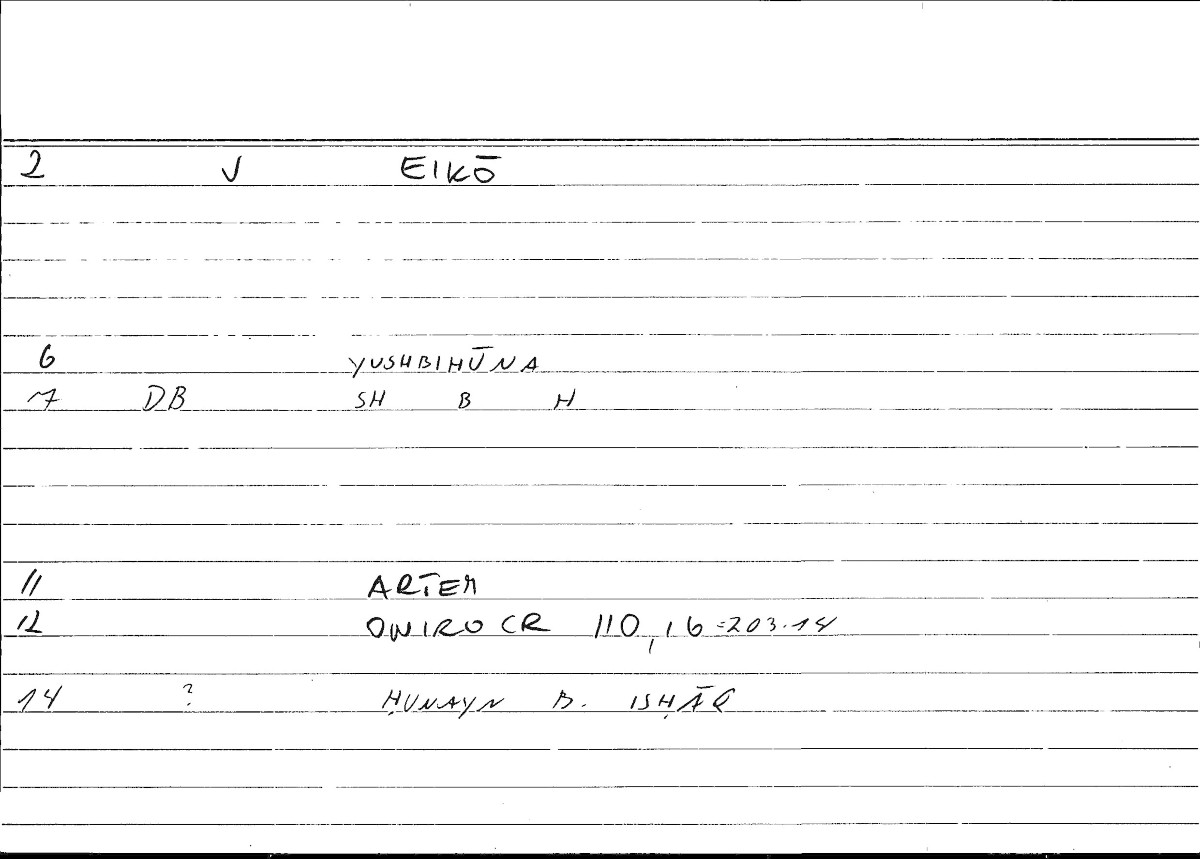 2 V EIKŌ
6 YUSHBIHŪNA
7 DB SH B H
11 ARTEM
12 ONIROCR 110,16=203.14
14 ? ḤUNAYN B. ISḤĀQ